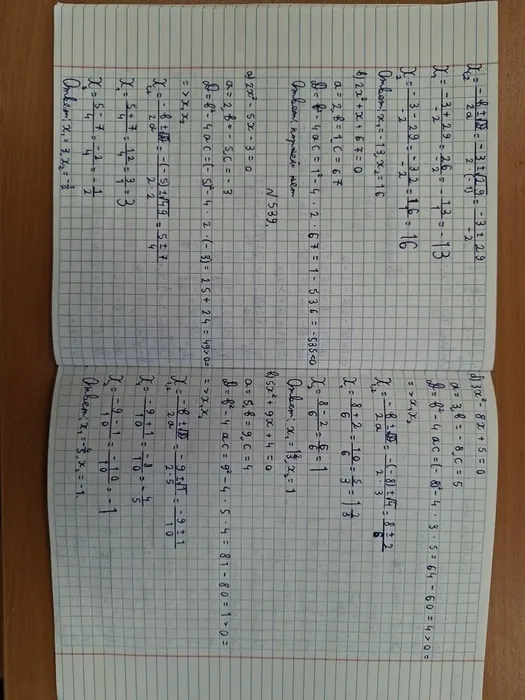 x₁,₂ = (-b ± √D)/2a = (-3 ± √29)/(2·(-1)) = (-3 ± 29)/-2
x₁ = (-3 + 29)/-2 = 26/-2 = -13/1 = -13
x₂ = (-3 - 29)/-2 = -32/-2 = 16/1 = 16
Ответ: x₁ = -13, x₂ = 16
в) 2x² + x + 67 = 0
a = 2, b = 1, c = 67
D = b² - 4ac = 1² - 4 · 2 · 67 = 1 - 536 = -535 < 0
Ответ: корней нет
№539.
а) 2x² - 5x - 3 = 0
a = 2, b = -5, c = -3
D = b² - 4ac = (-5)² - 4 · 2 · (-3) = 25 + 24 = 49 > 0 =
=> x₁, x₂
x₁,₂ = (-b ± √D)/2a = (-(-5) ± √49)/(2·2) = (5 ± 7)/4
x₁ = (5 + 7)/4 = 12/4 = 3/1 = 3
x₂ = (5 - 7)/4 = -2/4 = -1/2
Ответ: x₁ = 3, x₂ = -1/2
б) 3x² - 8x + 5 = 0
a = 3, b = -8, c = 5
D = b² - 4ac = (-8)² - 4 · 3 · 5 = 64 - 60 = 4 > 0 =
=> x₁, x₂
x₁,₂ = (-b ± √D)/2a = (-(-8) ± √4)/(2·3) = (8 ± 2)/6
x₁ = (8 + 2)/6 = 10/6 = 5/3 = 1 2/3
x₂ = (8 - 2)/6 = 6/6 = 1
Ответ: x₁ = 1 2/3, x₂ = 1
в) 5x² + 9x + 4 = 0
a = 5, b = 9, c = 4
D = b² - 4ac = 9² - 4 · 5 · 4 = 81 - 80 = 1 > 0 =
=> x₁, x₂
x₁,₂ = (-b ± √D)/2a = (-9 ± √1)/(2·5) = (-9 ± 1)/10
x₁ = (-9 + 1)/10 = -8/10 = -4/5
x₂ = (-9 - 1)/10 = -10/10 = -1
Ответ: x₁ = -4/5, x₂ = -1